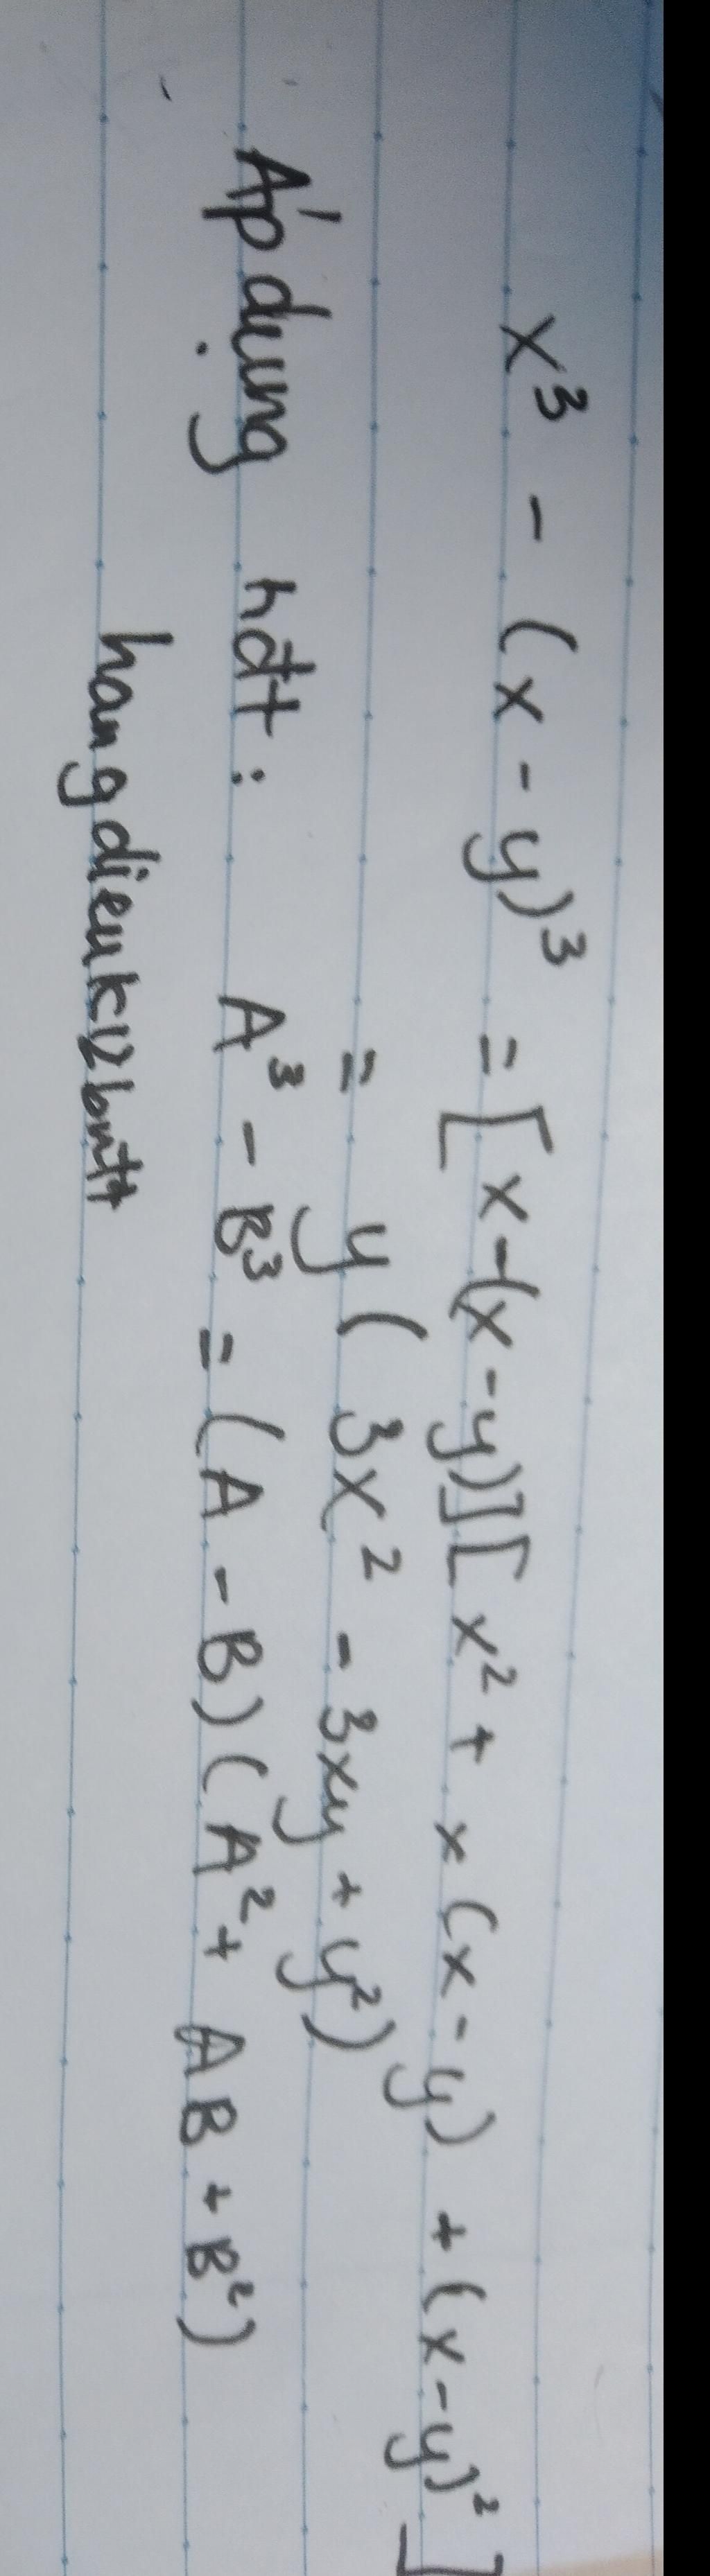 x³ - (x - y)³ = [x-(x-y)][x² + x(x-y) + (x-y)²]
= y(3x² - 3xy + y²)
Áp dụng hđt: A³ - B³ = (A - B)(A² + AB + B²)
hangdieuk12bntt